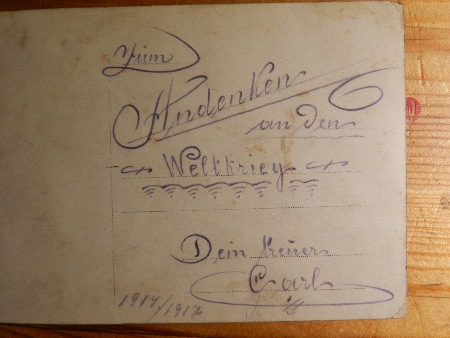 Zum
Andenken
an den
Weltkrieg
Dein treuer
Carl
1917/1917